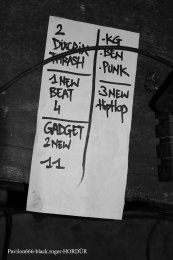 2
THRASH
1 NEW
BEAT
4
GADGET
2 NEW
11
.KG
.BEN
.PUNK
.3 NEW
HipHop
Pavilon666-black.roger-HORDÜR